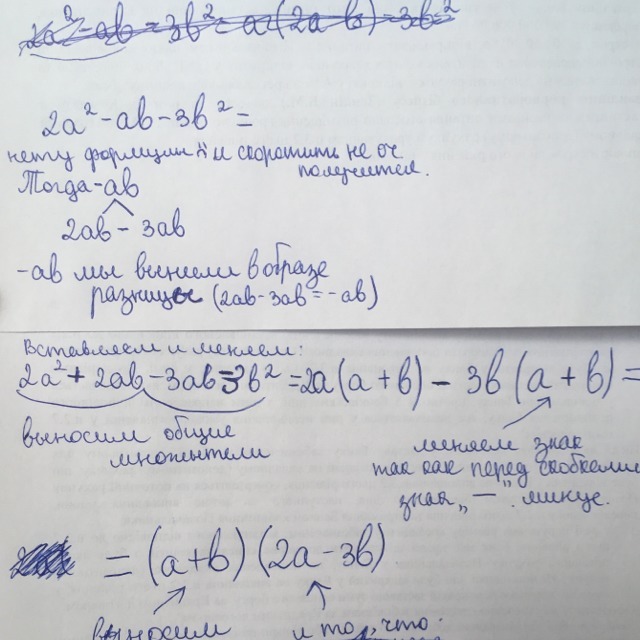 2a² - ab - 3b² = a(2a - b) - 3b²
2a² - ab - 3b² =
нету формции и скоротить не оч
получится.
Тогда -ab
2ab - 3ab
-ab мы вынели в образе
разници (2ab - 3ab = -ab)
Вставляем и меняем:
2a² + 2ab - 3ab - 3b² = 2a(a + b) - 3b(a + b) =
выносим общие
множители
меняем знак
так как перед скобками
знак „—” минус.
= (a+b)(2a - 3b)
выносим
и то, что